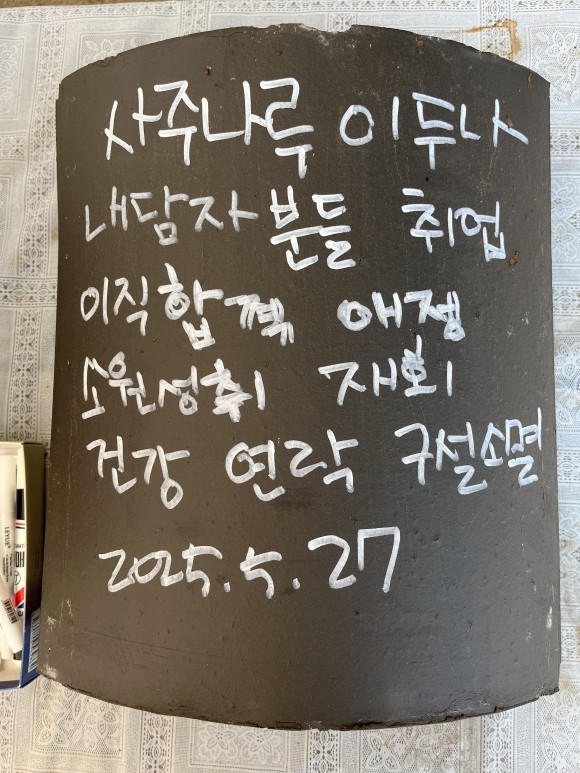 사주나루 이두나
내담자 분들 취업
이직 합격 애정
소원성취 재회
건강 연락 구설소멸
2025.5.27